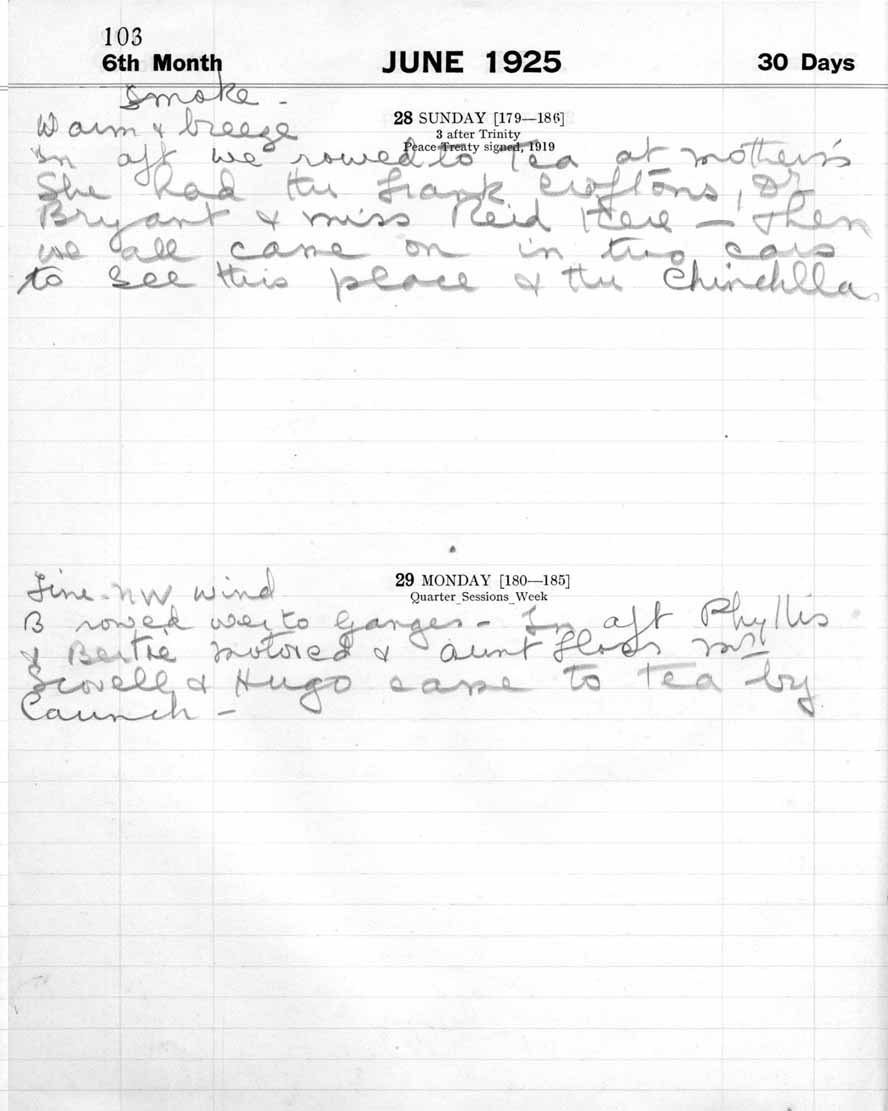 103
6th Month JUNE 1925 30 Days
Smoke -
28 SUNDAY [179—186]
3 after Trinity
Peace Treaty signed, 1919
Warm & breeze
In aft we rowed to Tea at mother's
She had the Frank Croftons, Dr
Bryant & miss Reid there - Then
we all came on in two cars
to see this place & the Chinchilla
29 MONDAY [180—185]
Quarter Sessions Week
Fine - NW wind
B rowed to Ganges - In aft Phyllis
& Bertie motored & aunt Floss mrs
Scovell & Hugo came to Tea by
Launch -